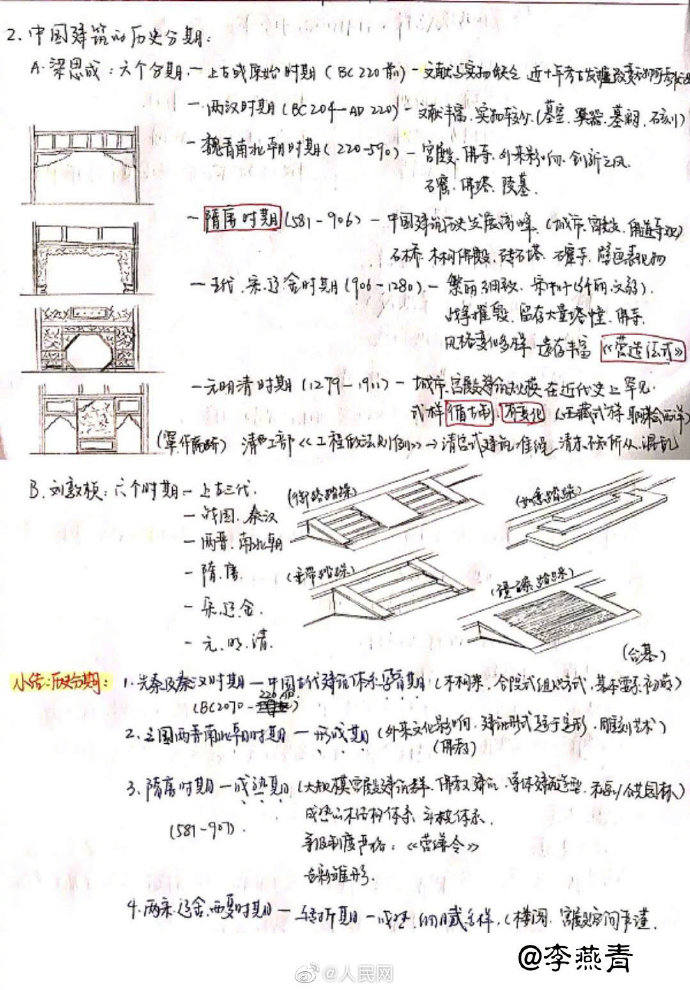 2. 中国建筑的历史分期:
A. 梁思成: 六个分期 — 上古或原始时期 (BC220前) — 文献与实物缺乏 近十年考古发掘
— 两汉时期 (BC204—AD220) — 文献丰富, 实物较少 (墓室, 墓阙, 石刻)
— 魏晋南北朝时期 (220-590) — 宫殿、佛寺、外来影响、创新之风
石窟、佛塔、陵墓.
— 隋唐时期 (581-906) — 中国建筑历史发展高峰. (城市、宫殿、
石桥、木构佛殿、砖石塔、石窟寺、壁画
— 五代、宋、辽、金时期 (906-1280) — 繁丽细致、
战争摧毁、留存大量塔幢、佛寺.
风格变化多样 遗存丰富 《营造法式》
— 元明清时期 (1279-1911) — 城市、宫殿建筑规模在近代史上罕见
式样
清西工部《工程做法则例》→ 清官式建筑准绳
B. 刘敦桢: 六个时期 — 上古三代.
— 战国、秦汉
— 两晋、南北朝
— 隋、唐
— 宋辽金.
— 元、明、清.
(御路踏跺)
(如意踏跺)
(垂带踏跺)
(礓磋踏跺)
(台基)
小结: 历史分期: 1. 先秦及秦汉时期 — 中国古代建筑体系 (木构架、合院式组织方式、基本要素初备)
(BC2070- 220
2. 三国两晋南北朝时期 — 形成期 (外来文化影响、建筑形式趋于定形、雕刻艺术)
(佛教)
3. 隋唐时期 — 成熟期 (大规模宫殿建筑群、佛教建筑、单体建筑造型、
(581-907). 成熟的木结构体系、斗栱体系.
等级制度严格: 《营缮令》
彩雏形.
4. 两宋、辽金、西夏时期 — 转折期 — 成熟、细腻多样. (楼阁、宫殿空间严谨.
@人民网
@李燕青